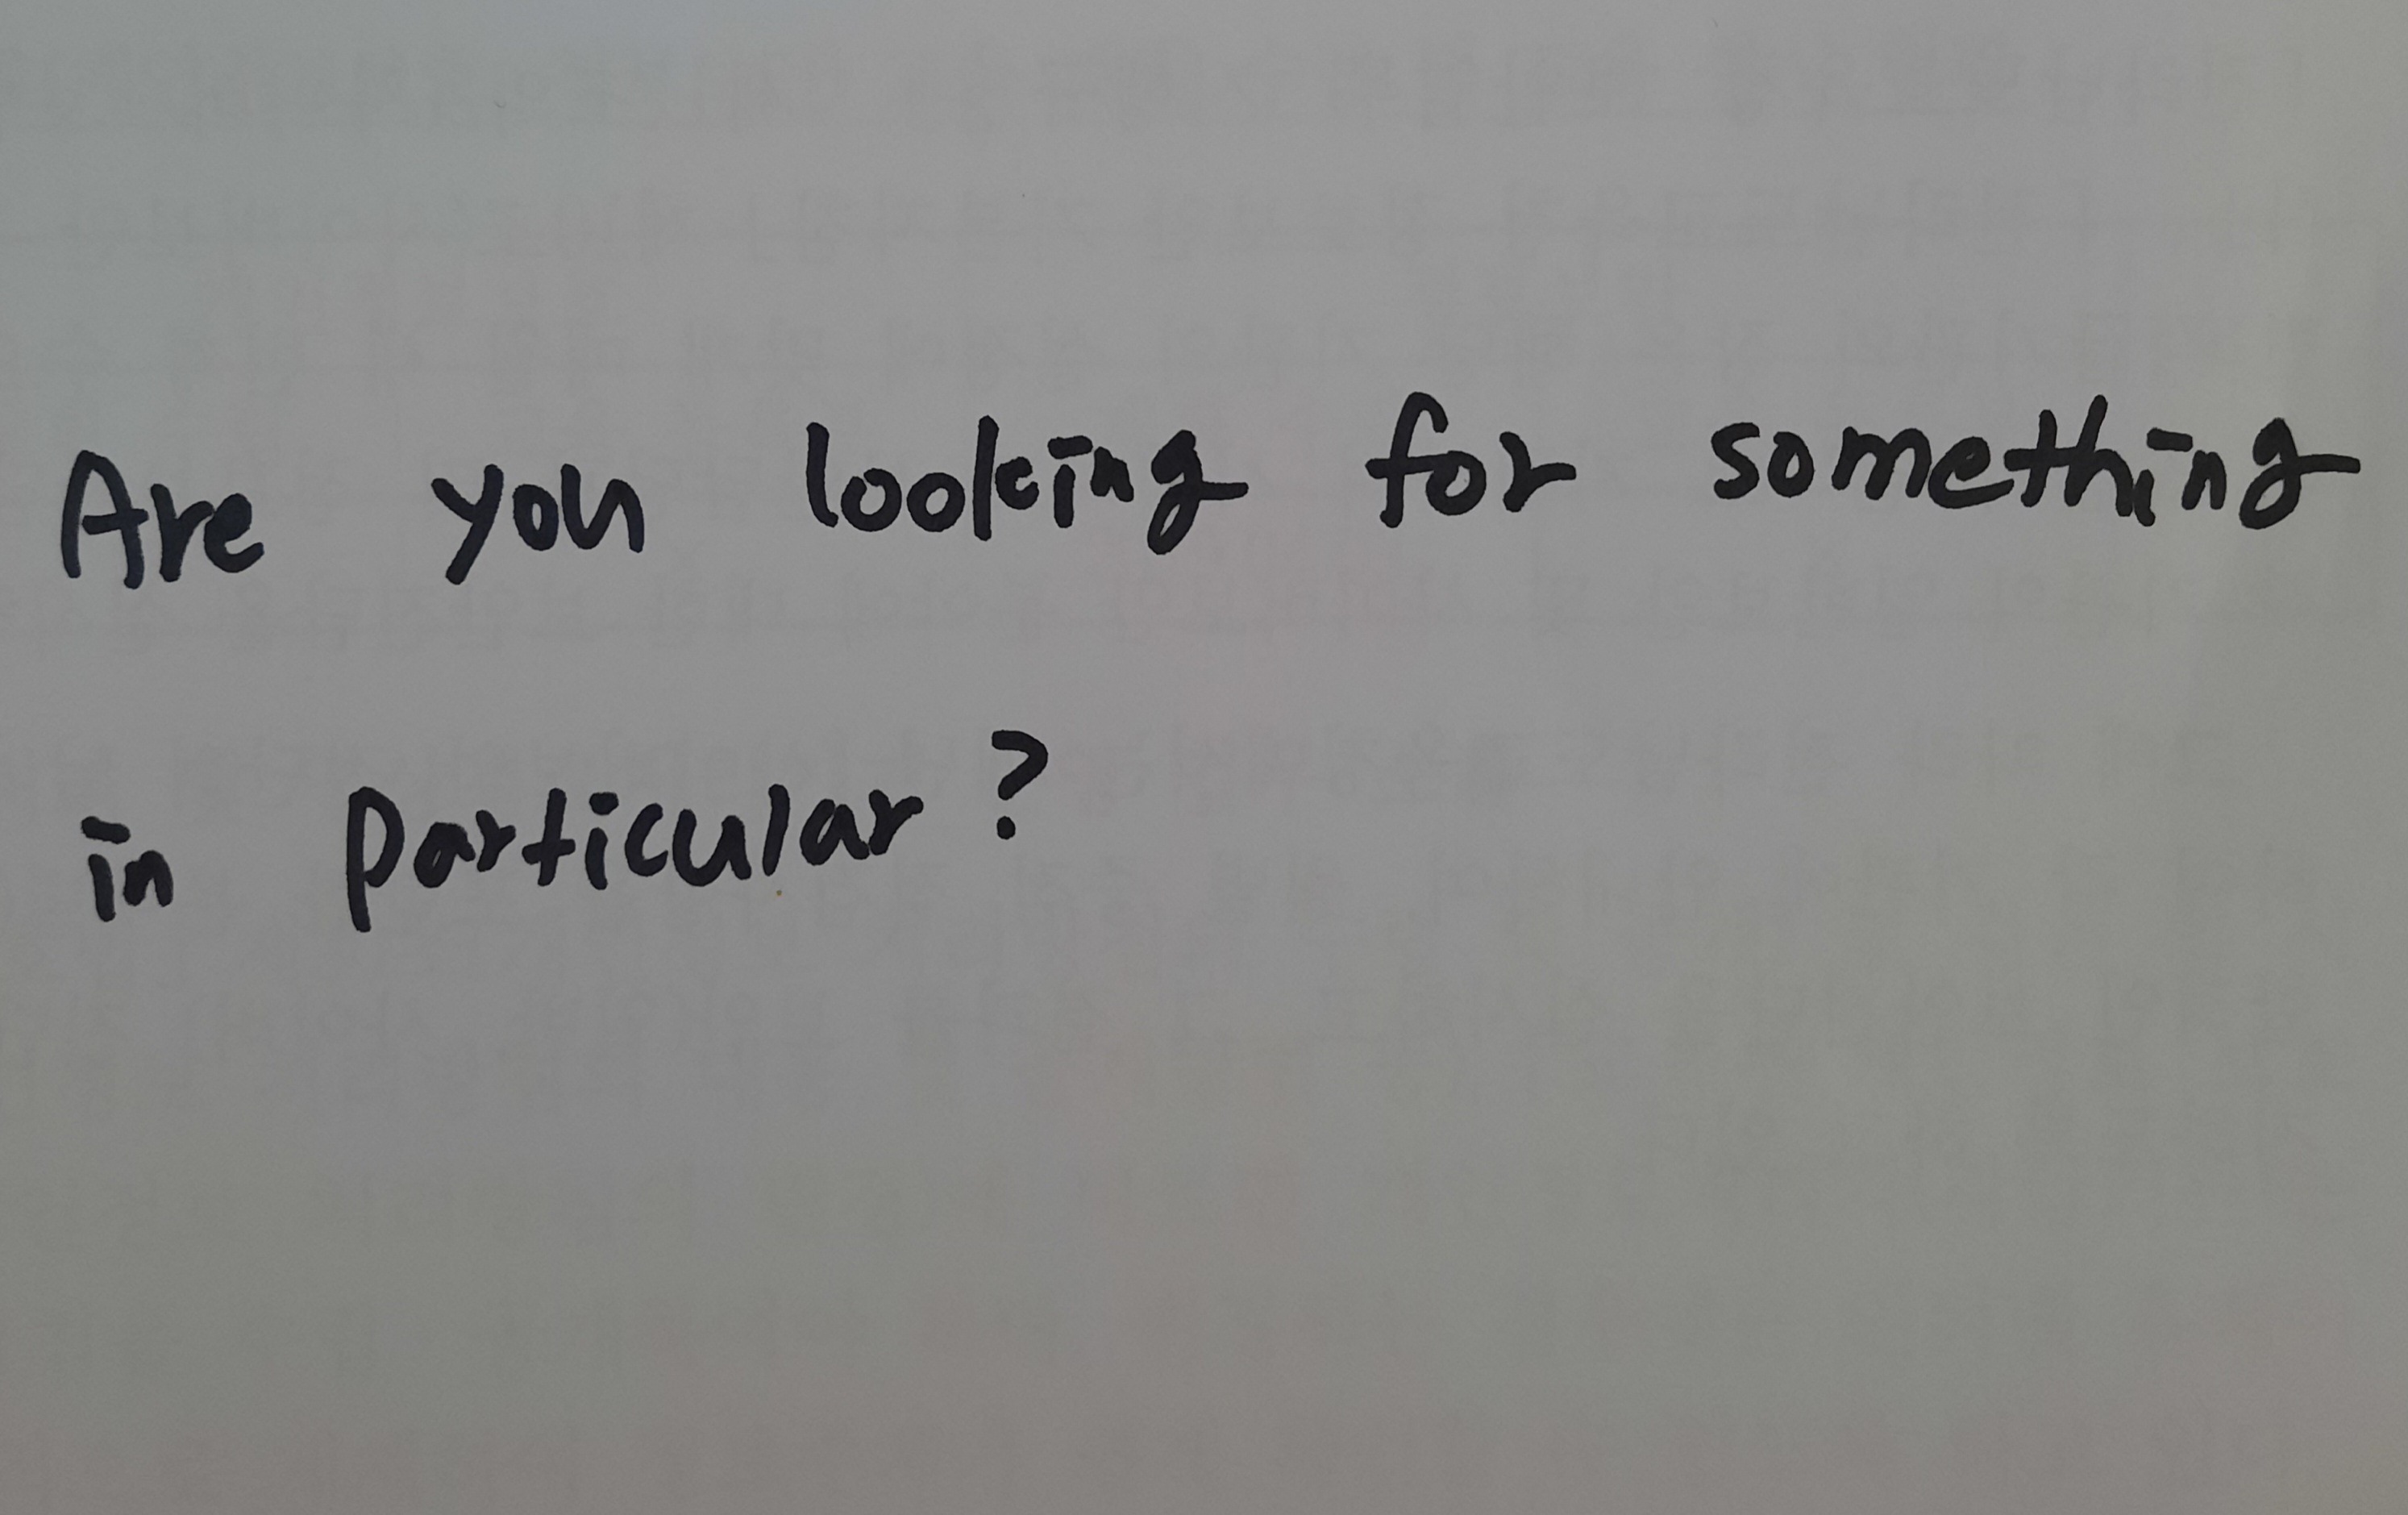 Are you looking for something
in particular?